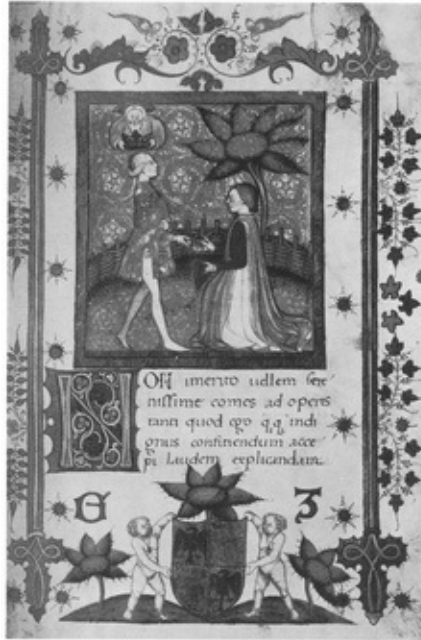 NON imerito uellem sere
nissime comes ad operis
tanti quod ego q,q indi
gnus conficiendum acce
pi laudem explicandam.
G 3